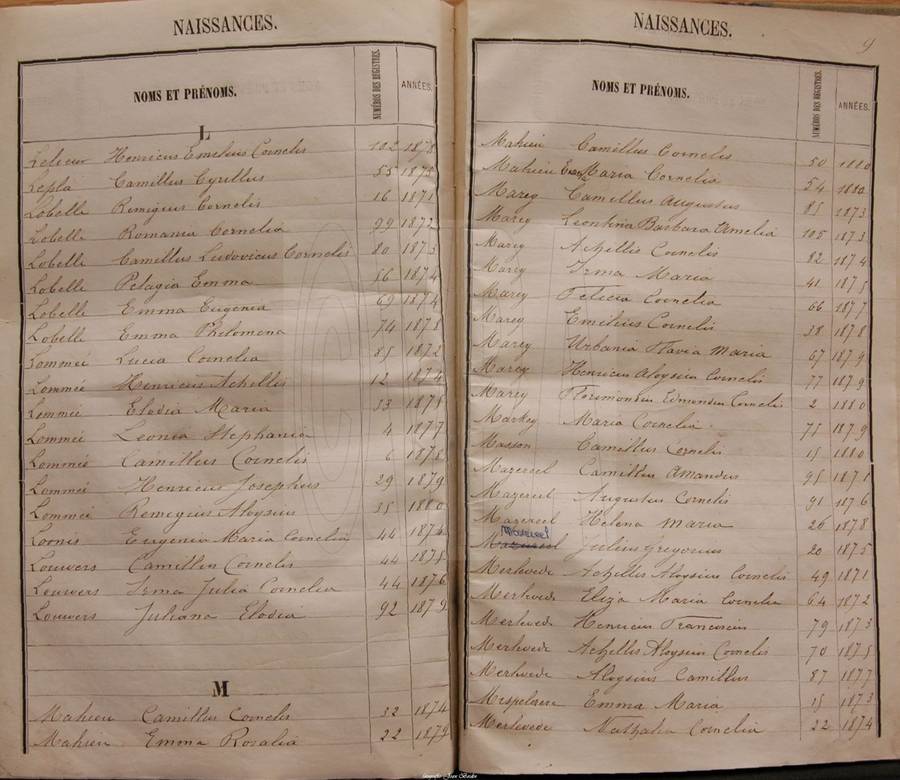 NAISSANCES.
NOMS ET PRÉNOMS. NUMÉROS DES REGISTRES. ANNÉES.
L
Henricus Emilius Cornelis 102 1878
Lepla Camillus Cyrillus 55 1875
Lobelle Remigius Cornelis 16 1871
Lobelle Romania Cornelia 99 1872
Lobelle Camillus Ludovicus Cornelis 80 1873
Lobelle Pelagia Emma 56 1874
Lobelle Emma Eugenia 69 1874
Lobelle Emma Philomena 74 1878
Lommée Lucia Cornelia 85 1872
Lommée Henricus Achillis 12 1874
Lommée Elodia Maria 33 1875
Lommée Leonia Stephania 4 1877
Lommée Camillus Cornelis 6 1878
Lommée Henricus Josephus 29 1879
Lommée Remegius Aloysius 35 1880
Loonis Eugenia Maria Cornelia 44 1874
Louwers Camillus Cornelis 44 1875
Louwers Irma Julia Cornelia 44 1876
Louwers Juliana Elodia 92 1879
M
Mahieu Camillus Cornelis 32 1874
Mahieu Emma Rosalia 22 1879
NAISSANCES.
9
NOMS ET PRÉNOMS. NUMÉROS DES REGISTRES. ANNÉES.
Mahieu Camillus Cornelis 50 1880
Mahieu Maria Cornelia 54 1880
Marey Camillus Augustus 85 1873
Marey Leontina Barbara Amelia 105 1873
Marey Achillis Cornelis 82 1874
Marey Irma Maria 41 1875
Marey Felicia Cornelia 66 1877
Marey Emilius Cornelis 38 1878
Marey Urbania Flavia Maria 67 1879
Marey Henricus Aloysius Cornelis 77 1879
Marey Florimondus Edmondus Cornelis 2 1880
Markey Maria Cornelia 75 1879
Masson Camillus Cornelis 15 1880
Mazereel Camillus Amandus 95 1871
Mazereel Augustus Cornelis 91 1876
Mazereel Helena Maria 26 1878
Julius Gregorius 20 1875
Merhvede Achillis Aloysius Cornelis 49 1871
Merhvede Eliza Maria Cornelia 64 1872
Merhvede Henricus Franciscus 79 1873
Merhvede Achillis Aloysius Cornelis 70 1875
Merhvede Aloysius Camillus 87 1877
Mispelaere Emma Maria 15 1873
Merhvede Nathalia Cornelia 22 1874